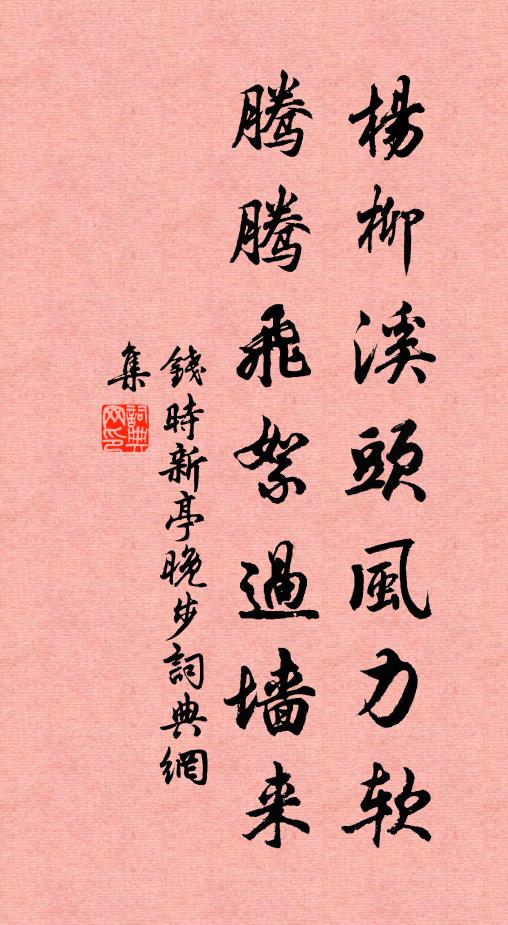 楊柳溪頭風力软
騰騰飛絮過墙来
錢時新亭晚步詞典網
集
詞典网印